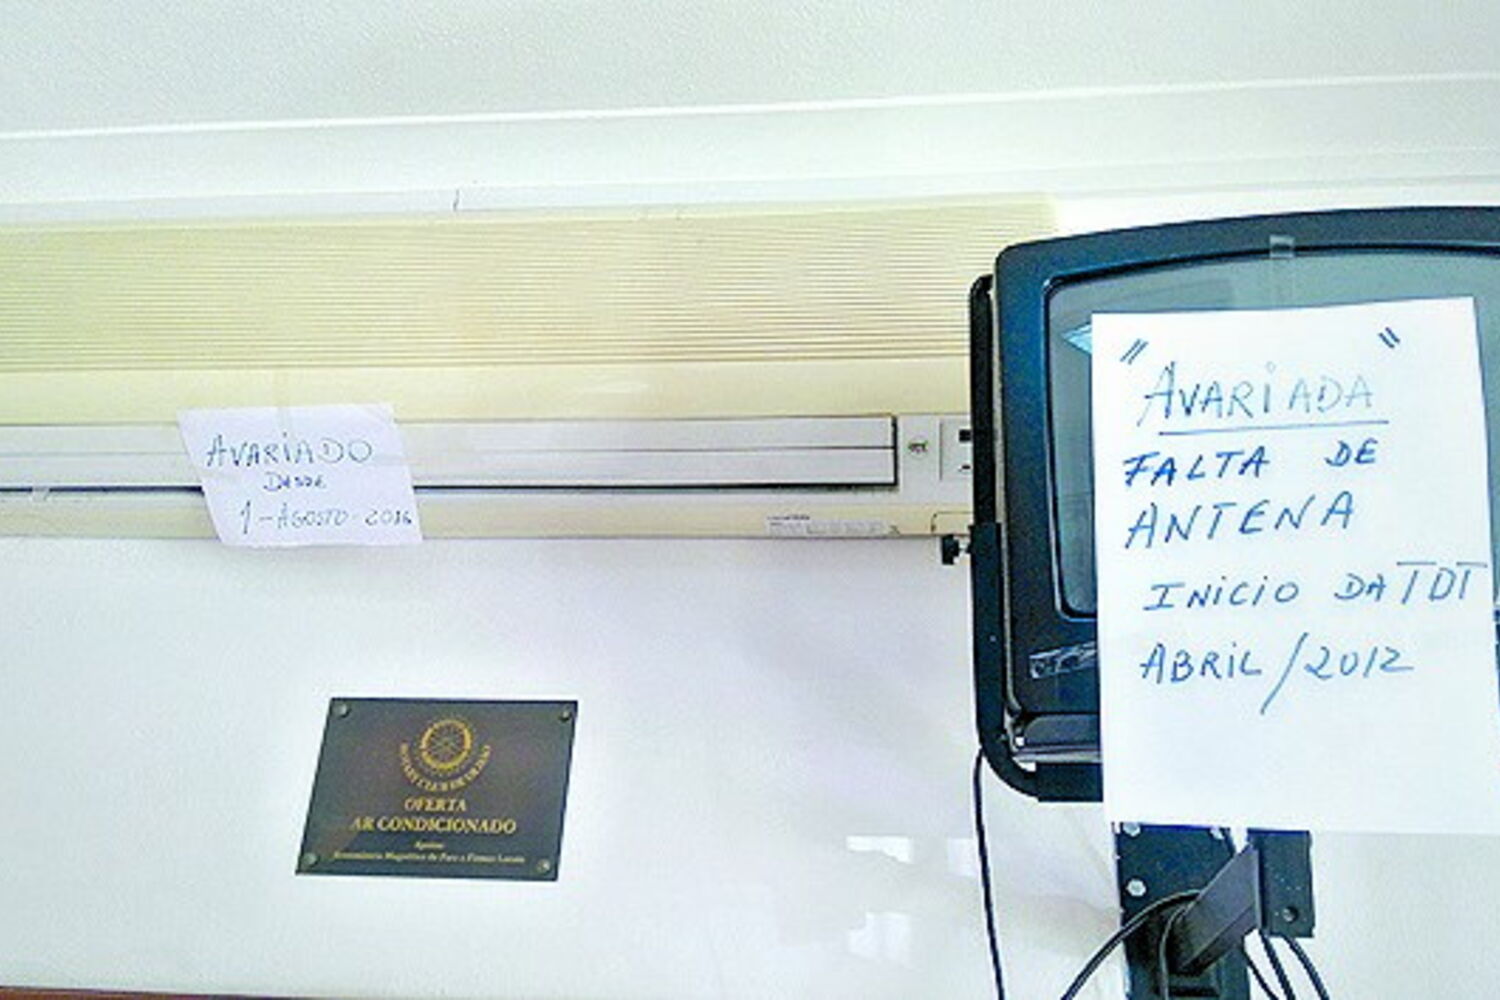 AVARIADO
DESDE
1-AGOSTO-2016
" "
AVARIADA
FALTA DE
ANTENA
INICIO DA TDT
ABRIL/2012
ROTARY CLUB DE
OFERTA
AR CONDICIONADO
Apoios: